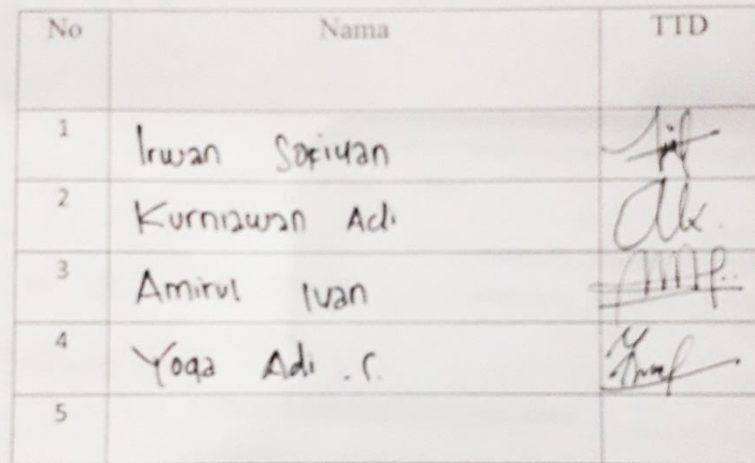 No Nama TTD
1 Irwan Sofiyan
2 Kurniawan Adi
3 Amirul Ivan
4 Yoga Adi .r.
5